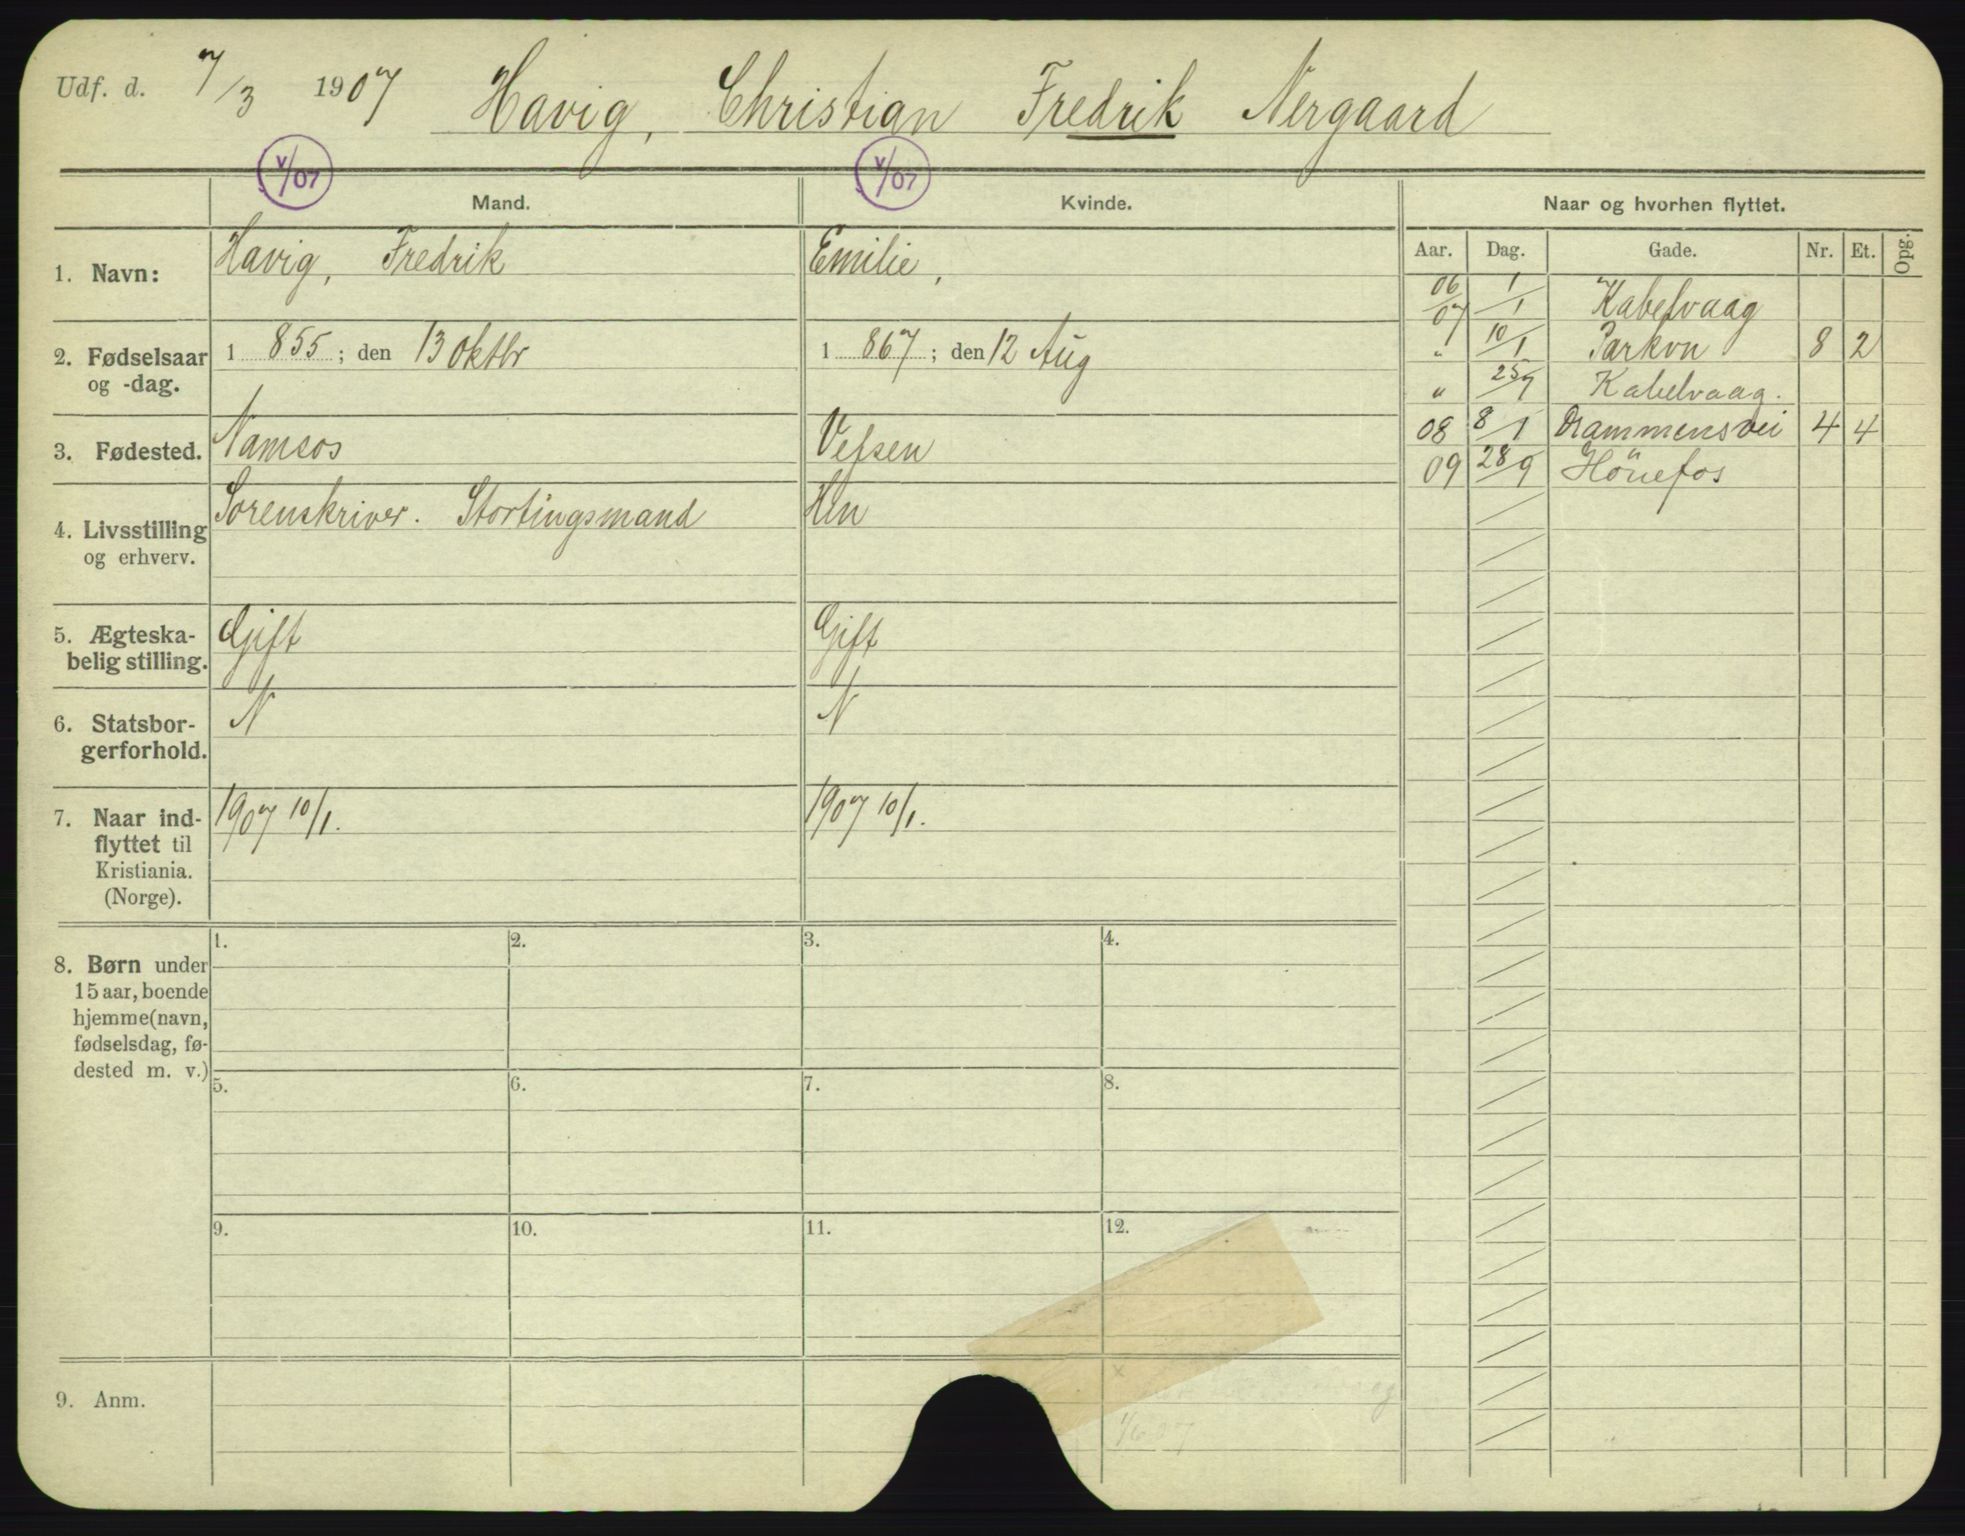 Udf. d. 7/3 1907 Havig, Christian Fredrik Nergaard
V/07 V/07
Mand. Kvinde. Naar og hvorhen flyttet.
Aar. Dag. Gade. Nr. Et. Opg.
1. Navn: Havig, Fredrik Emilie,
2. Fødselsaar og -dag. 1855; den 13 Oktbr 1867; den 12 Aug
3. Fødested. Namsos Vefsen
4. Livsstilling og erhverv. Sorenskriver. Stortingsmand Hm
5. Ægteska-
belig stilling. Gift Gift
6. Statsbor-
gerforhold. N N
7. Naar ind-
flyttet til
Kristiania.
(Norge). 1907 10/1. 1907 10/1.
06/07 1/1 Kabelvaag
" 10/1 Parkvn 8 2
" 25/7 Kabelvaag.
08 8/1 Drammensvei 4 4
09 28/9 Hönefos
8. Børn under
15 aar, boende
hjemme (navn,
fødselsdag, fø-
dested m. v.)
1. 2. 3. 4.
5. 6. 7. 8.
9. 10. 11. 12.
9. Anm.